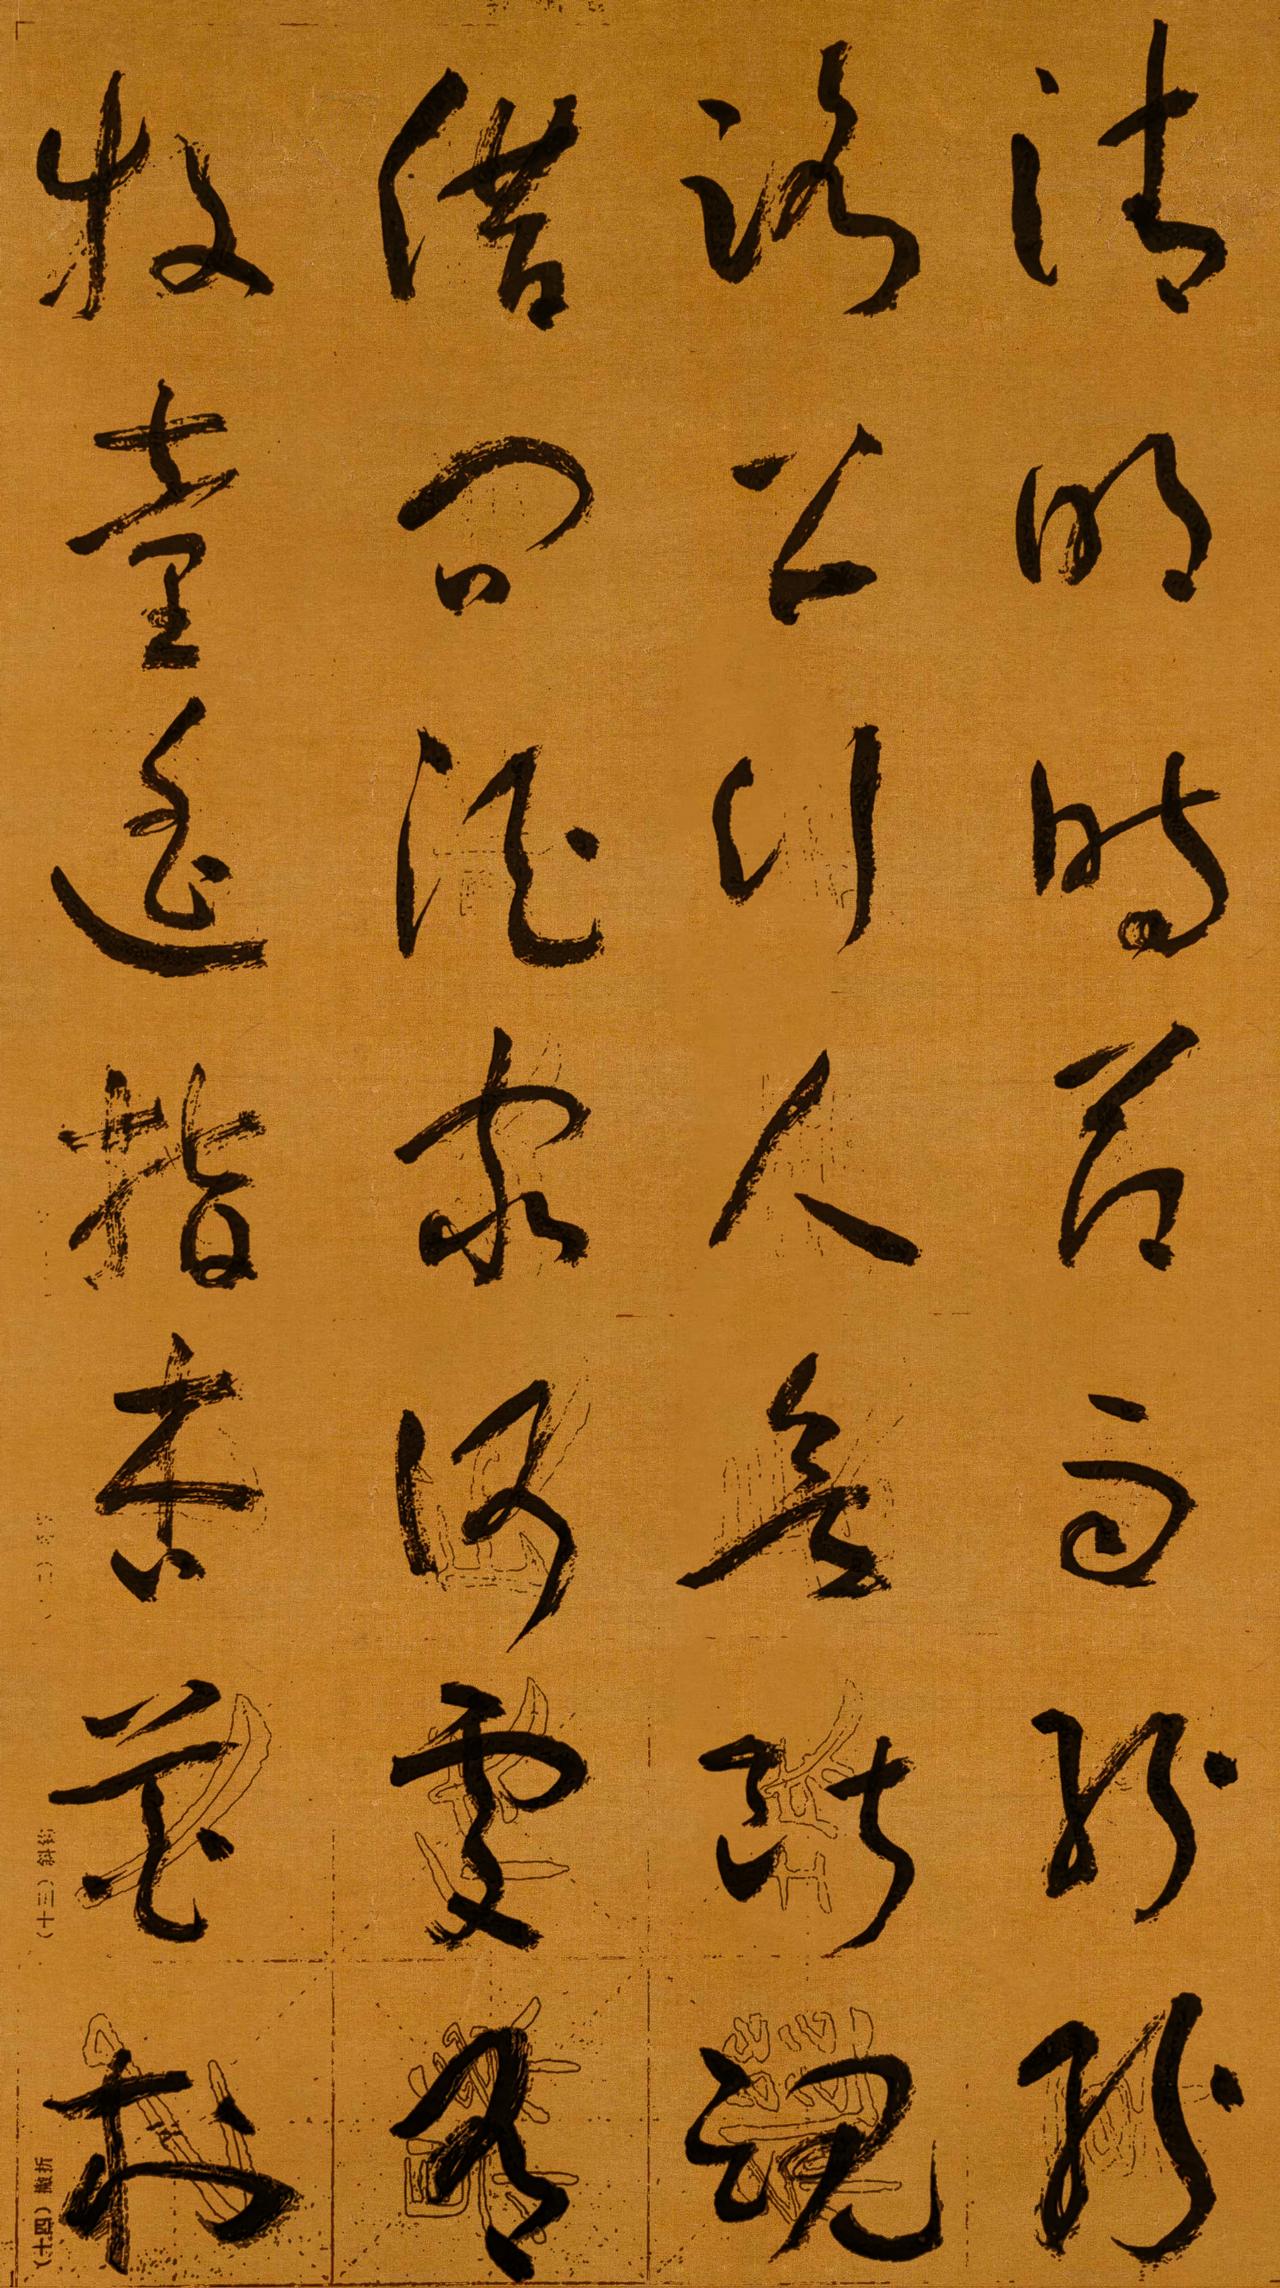 清明时节雨纷纷
路上行人欲断魂
借问酒家何处有
牧童遥指杏花村
(十三)斜
(十四)撇折